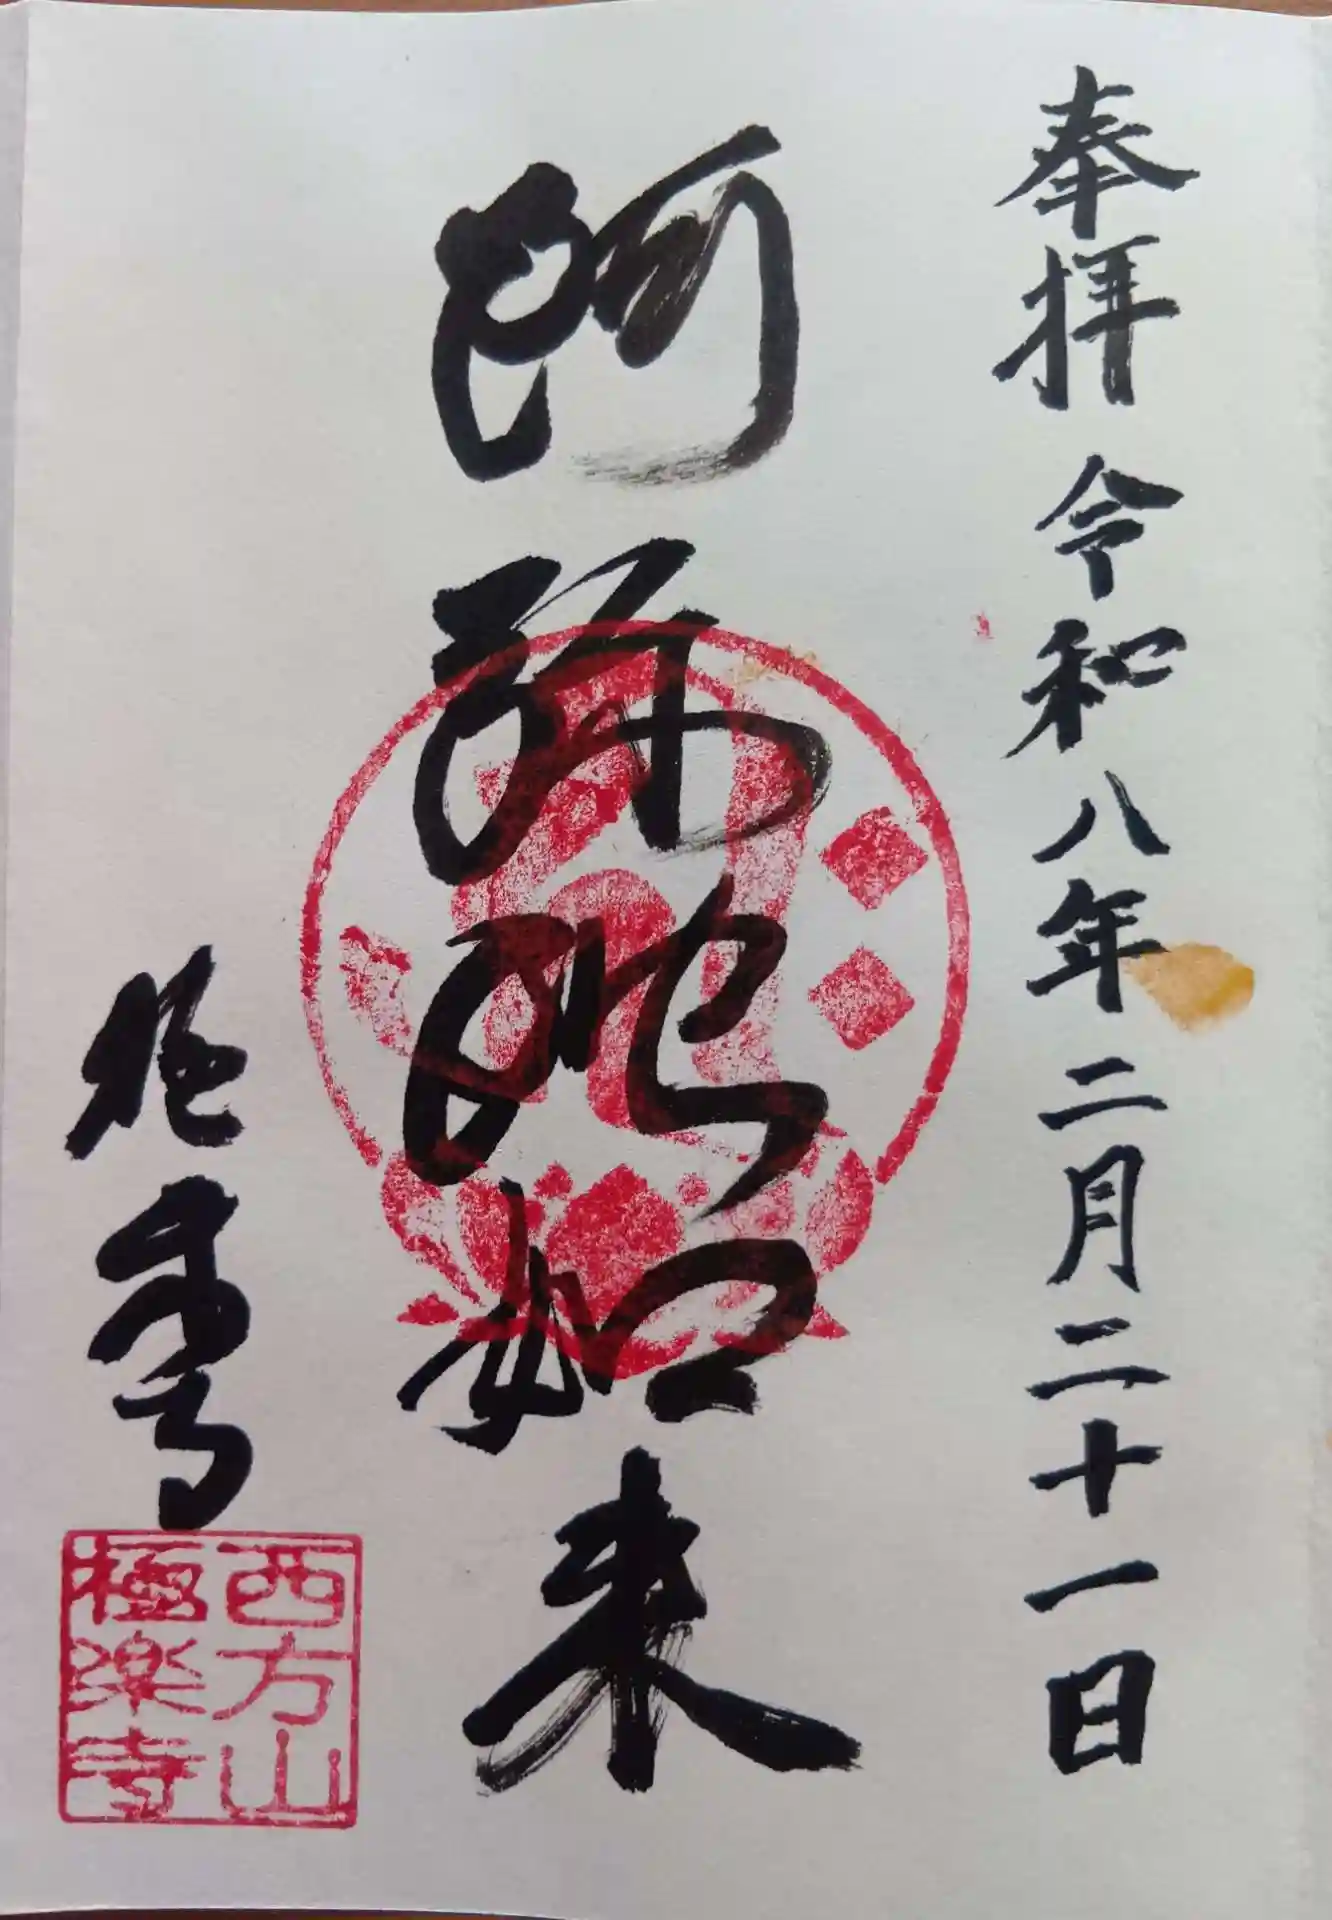 奉拝 令和八年二月二十一日
阿弥陀如来
西方山
極楽寺